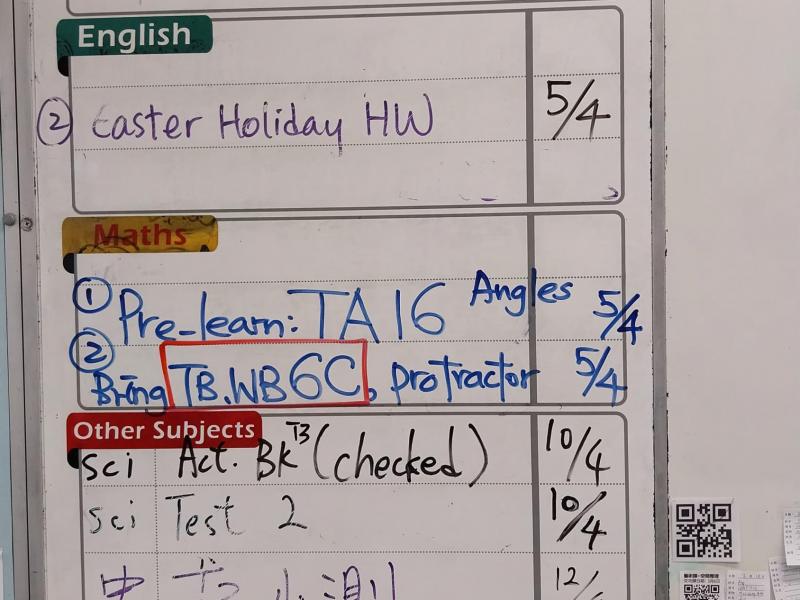 English
② Easter Holiday HW 5/4
Maths
① Pre-learn: TA16 Angles 5/4
② Bring TB.WB6C, protractor 5/4
Other Subjects
sci Act. BK T3 (checked) 10/4
sci Test 2 10/4
中 小測 12/